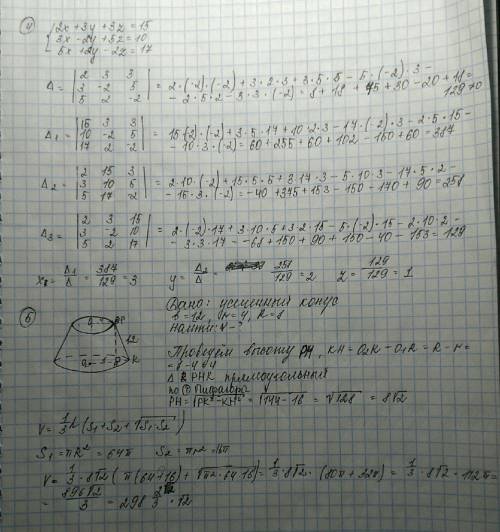 4
2x + 3y + 3z = 15
3x - 2y + 5z = 10
5x + 2y - 2z = 17
Δ = | 2 3 3 | 3 -2 5 | 5 2 -2 | = 2·(-2)·(-2) + 3·2·3 + 3·5·5 - 5·(-2)·3 -
- 2·5·2 - 3·3·(-2) = 8 + 18 + 75 + 30 - 20 + 18 =
129 ≠ 0
Δ1 = | 15 3 3 | 10 -2 5 | 17 2 -2 | = 15·(-2)·(-2) + 3·5·17 + 10·2·3 - 17·(-2)·3 - 2·5·15 -
- 10·3·(-2) = 60 + 255 + 60 + 102 - 150 + 60 = 387
Δ2 = | 2 15 3 | 3 10 5 | 5 17 -2 | = 2·10·(-2) + 15·5·5 + 3·17·3 - 5·10·3 - 17·5·2 -
- 15·3·(-2) = -40 + 375 + 153 - 150 - 170 + 90 = 258
Δ3 = | 2 3 15 | 3 -2 10 | 5 2 17 | = 2·(-2)·17 + 3·10·5 + 3·2·15 - 5·(-2)·15 - 2·10·2 -
- 3·3·17 = -68 + 150 + 90 + 150 - 40 - 153 = 129
x = Δ1/Δ = 387/129 = 3 y = Δ2/Δ = 258/129 = 2 z = 129/129 = 1
5
Дано: усеченный конус
l = 12, r = 4, R = 8
Найти: V - ?
12
Проведём высоту PH, KH = O2K - O1P = R - r =
= 8 - 4 = 4
Δ PHK прямоугольный
по Т Пифагора
PH = √PK² - KH² = √144 - 16 = √128 = 8√2
V = 1/3 h (S1 + S2 + √S1·S2)
S1 = πR² = 64π S2 = πr² = 16π
V = 1/3 · 8√2 (π(64 + 16) + √π²·64·16) = 1/3 · 8√2 · (80π + 32π) = 1/3 · 8√2 · 112π =
= 896√2/3